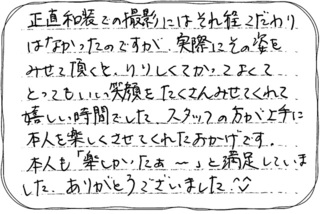 正直和装での撮影にはそれ程こだわり
はなかったのですが、実際にその姿を
みせて頂くと、りりしくてかっこよくて
とってもいい笑顔をたくさんみせてくれて
嬉しい時間でした。スタッフの方が上手に
本人を楽しくさせてくれたおかげです。
本人も「楽しかったぁ〜」と満足していま
した。ありがとうございました^^